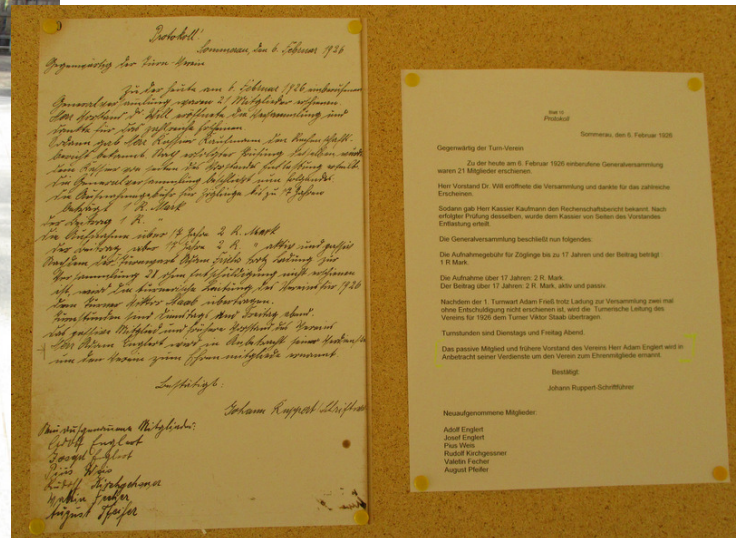 Protokoll!
Sommerau, den 6. Februar 1926
Gegenwärtig der Turn-Verein
Zu der heute am 6. Februar 1926 einberufenen
Generalversammlung waren 21 Mitglieder erschienen.
Herr Vorstand Dr. Will eröffnete die Versammlung und
dankte für das zahlreiche Erscheinen.
Sodann gab Herr Kassier Kaufmann den Rechenschafts-
bericht bekannt. Nach erfolgter Prüfung desselben wurde
dem Kassier von seiten des Vorstandes Entlastung erteilt.
Die Generalversammlung beschließt nun folgendes:
Die Aufnahmegebühr für Zöglinge bis zu 17 Jahren
beträgt 1 R. Mark
Der Beitrag 1 R. "
Die Aufnahme über 17 Jahre 2 R. Mark
Der Beitrag über 17 Jahre 2 R. " aktiv und passiv
Nachdem der Turnwart Adam Fries trotz Ladung zur
Versammlung 2 ohne Entschuldigung nicht erschienen
ist, wird die turnerische Leitung des Vereins für 1926
dem Turner Viktor Staab übertragen.
Turnstunden sind Dienstags und Freitag abend.
Das passive Mitglied und frühere Vorstand des Vereins
Herr Adam Englert, wird in Anbetracht seiner Verdienste
um den Verein zum Ehrenmitgliede ernannt.
Bestätigt:
Johann Ruppert Schriftw
Neuaufgenommene Mitglieder:
Adolf Englert
Josef Englert
Pius Weis
Rudolf Kirchgessner
Valtin Fecher
August Pfeifer
Protokoll
Sommerau, den 6. Februar 1926
Gegenwärtig der Turn-Verein
Zu der heute am 6. Februar 1926 einberufene Generalversammlung
waren 21 Mitglieder erschienen.
Herr Vorstand Dr. Will eröffnete die Versammlung und dankte für das zahlreiche
Erscheinen.
Sodann gab Herr Kassier Kaufmann den Rechenschaftsbericht bekannt. Nach
erfolgter Prüfung desselben, wurde dem Kassier von Seiten des Vorstandes
Entlastung erteilt.
Die Generalversammlung beschließt nun folgendes:
Die Aufnahmegebühr für Zöglinge bis zu 17 Jahren und der Beitrag beträgt:
1 R Mark
Die Aufnahme über 17 Jahren: 2 R. Mark.
Der Beitrag über 17 Jahren: 2 R. Mark, aktiv und passiv.
Nachdem der 1. Turnwart Adam Frieß trotz Ladung zur Versammlung zwei mal
ohne Entschuldigung nicht erschienen ist, wird die Turnerische Leitung des
Vereins für 1926 dem Turner Viktor Staab übertragen.
Turnstunden sind Dienstags und Freitag Abend.
Das passive Mitglied und frühere Vorstand des Vereins Herr Adam Englert wird in
Anbetracht seiner Verdienste um den Verein zum Ehrenmitgliede ernannt.
Bestätigt:
Johann Ruppert-Schriftführer
Neuaufgenommene Mitglieder:
Adolf Englert
Josef Englert
Pius Weis
Rudolf Kirchgessner
Valetin Fecher
August Pfeifer